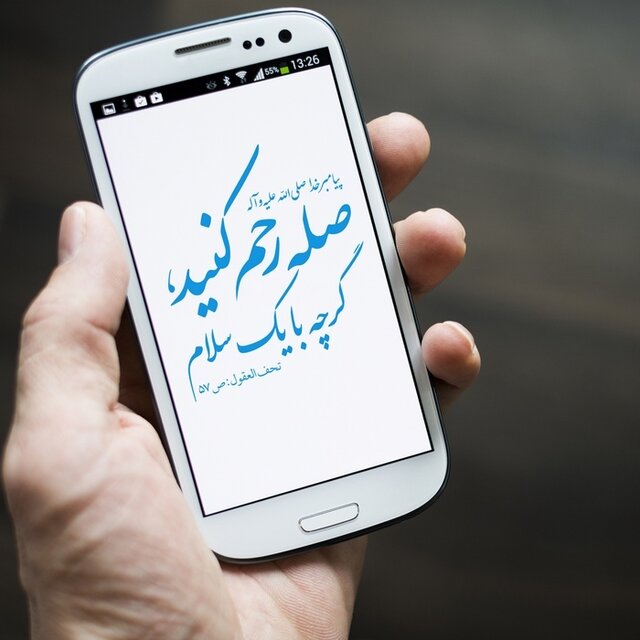 55% 13:26
پیامبر خدا صلی الله علیه و آله
صله رحم کنید،
گرچه با یک سلام
تحف العقول: ص ۵۷